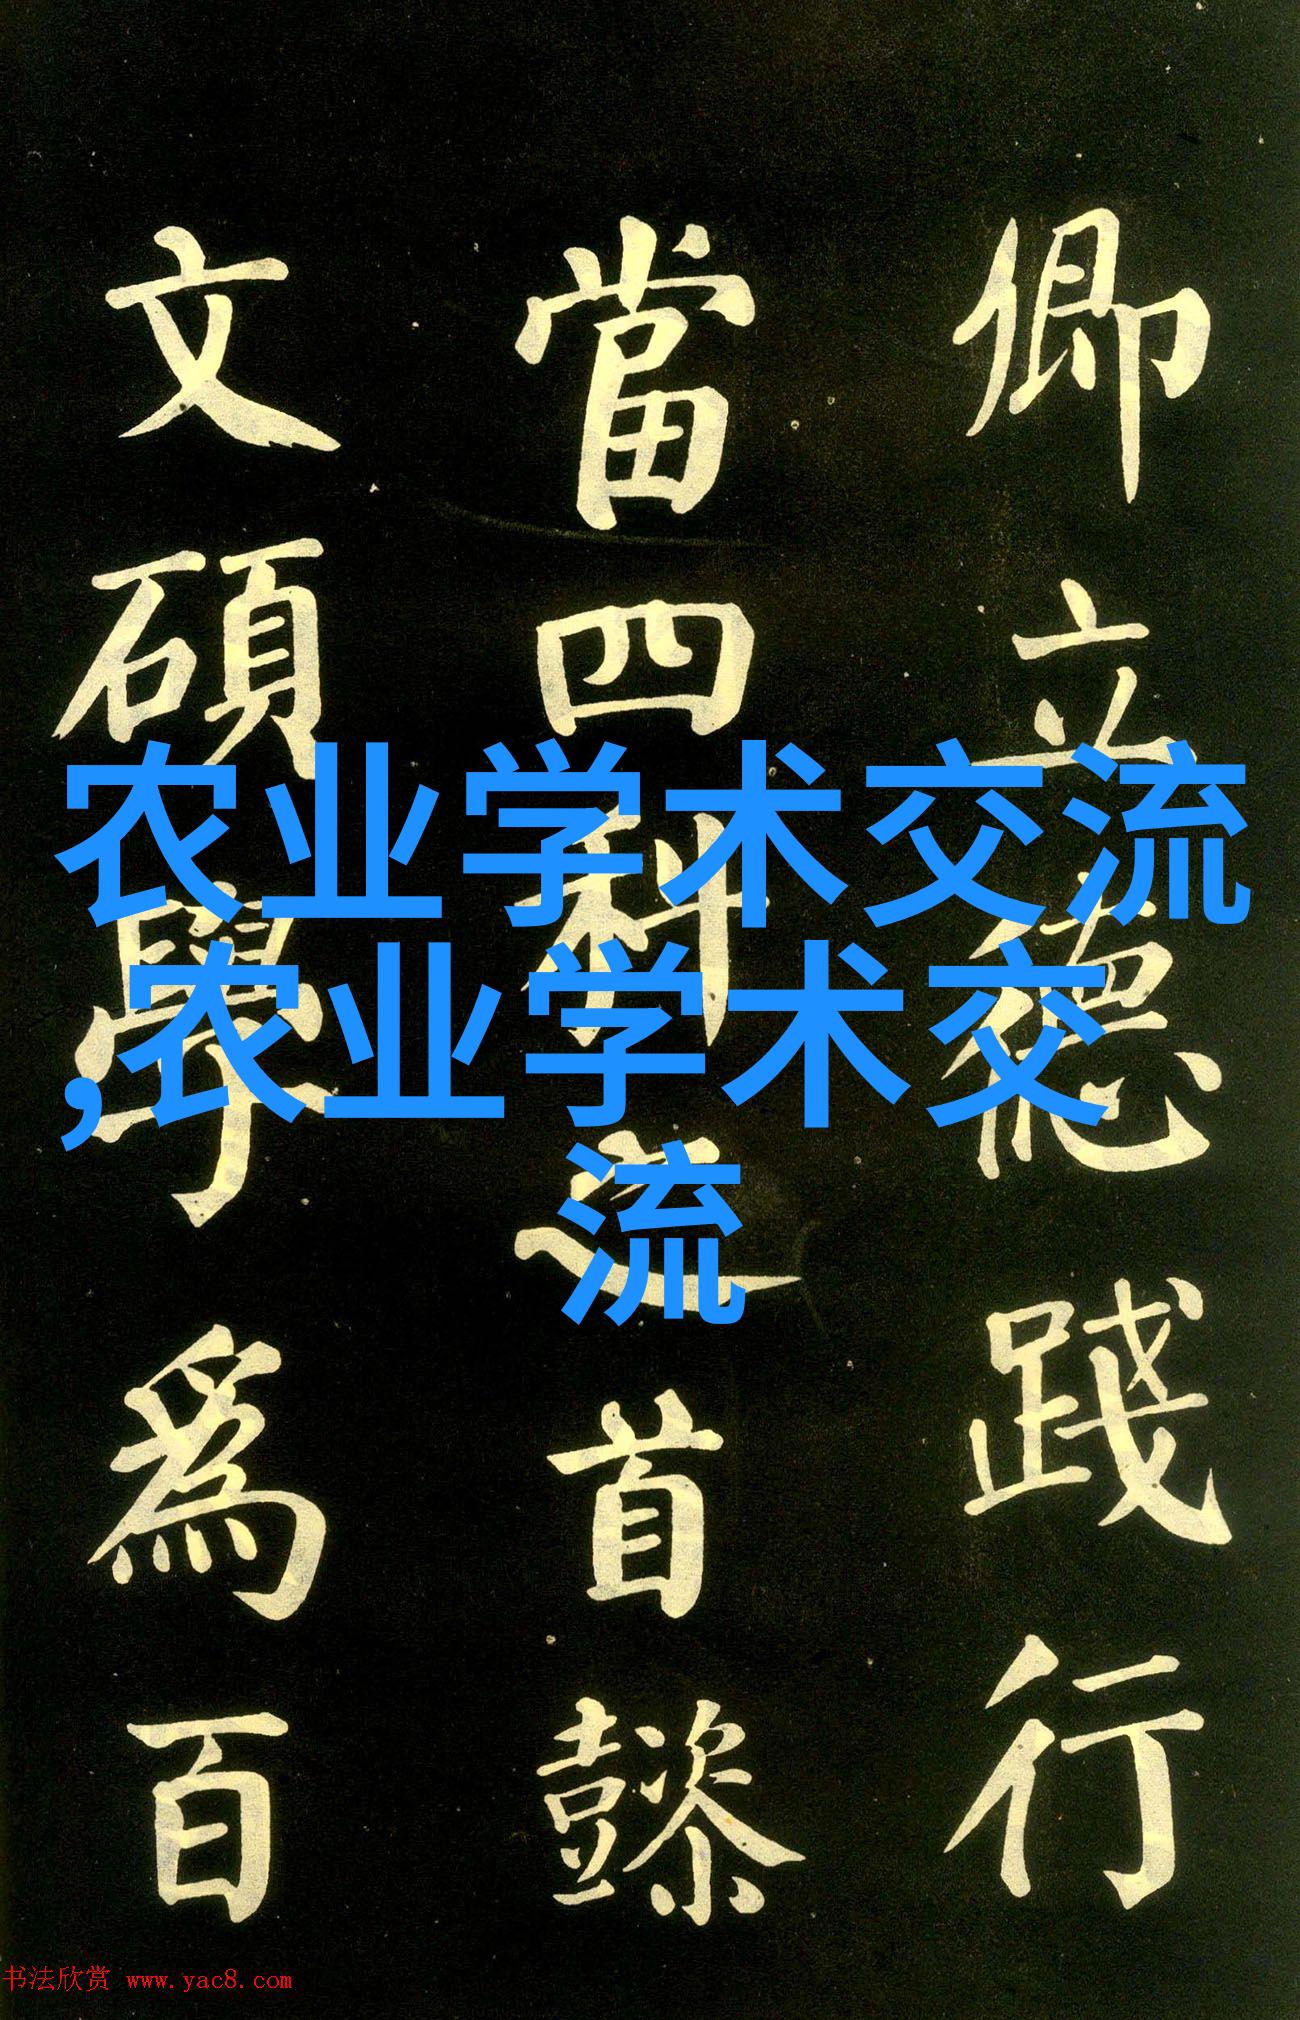 卿立德踐行
當四科之首懿
文碩學爲百
农业学术交流
,农业学术交
流
书法欣赏 www.yac8.com